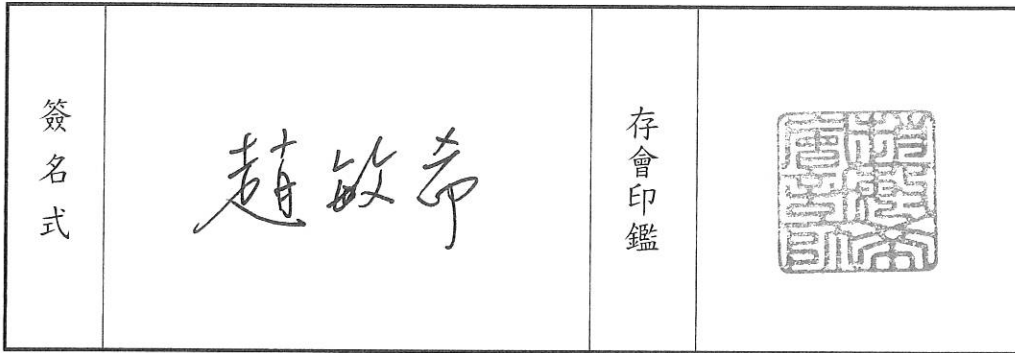 簽名式
趙敏希
存會印鑑